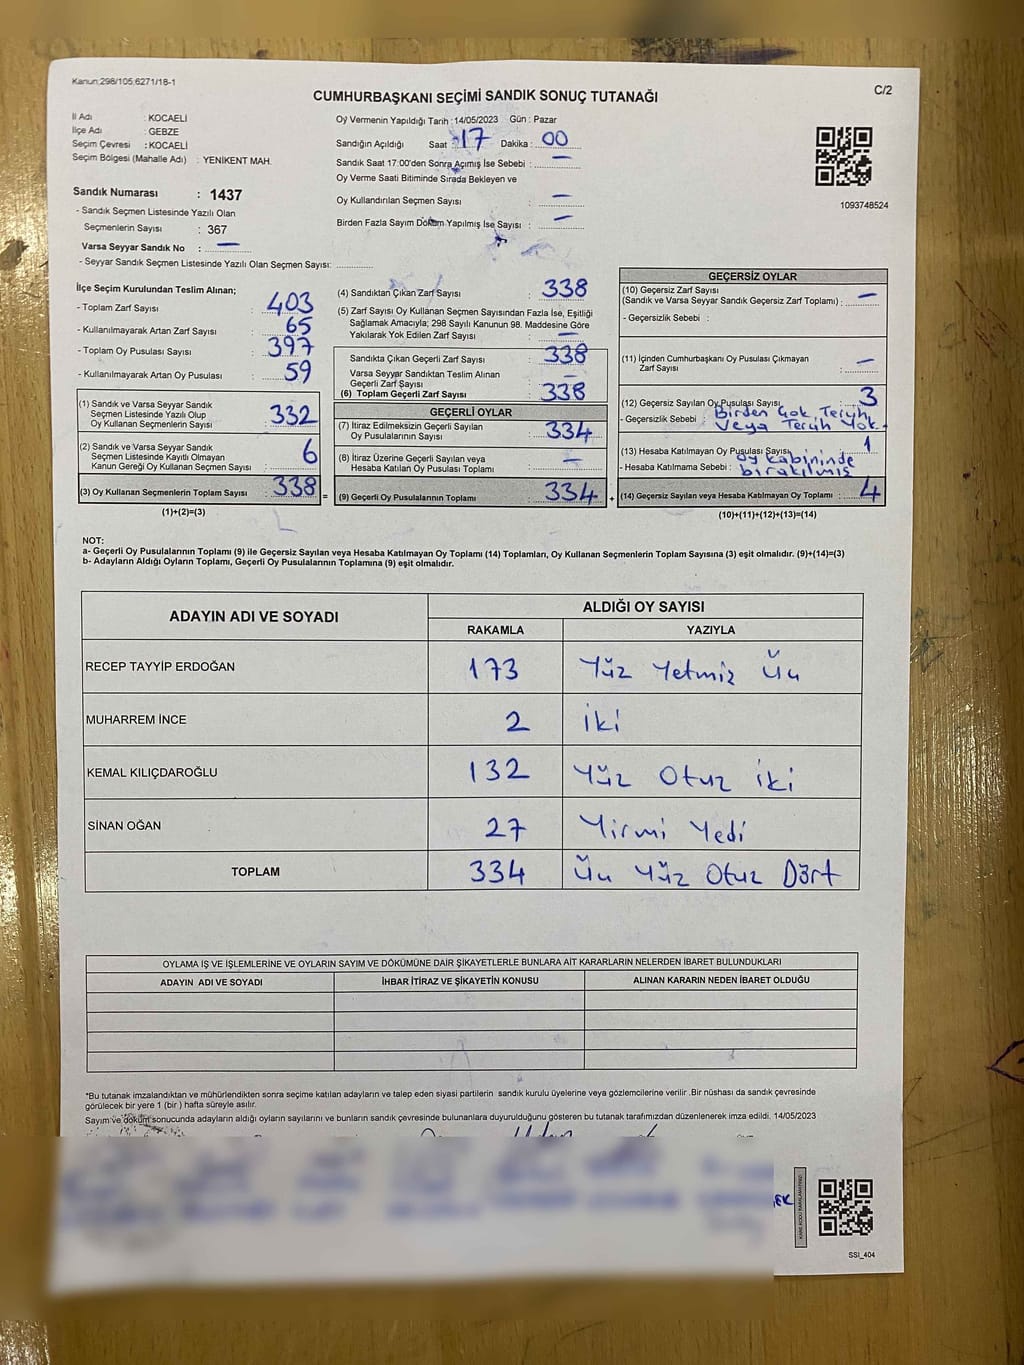 Kanun:298/105,6271/18-1
C/2
CUMHURBAŞKANI SEÇİMİ SANDIK SONUÇ TUTANAĞI
İl Adı : KOCAELİ
İlçe Adı : GEBZE
Seçim Çevresi : KOCAELİ
Seçim Bölgesi (Mahalle Adı) : YENİKENT MAH.
Sandık Numarası : 1437
- Sandık Seçmen Listesinde Yazılı Olan
Seçmenlerin Sayısı : 367
Varsa Seyyar Sandık No : —
- Seyyar Sandık Seçmen Listesinde Yazılı Olan Seçmen Sayısı: ............
Oy Vermenin Yapıldığı Tarih :14/05/2023 Gün : Pazar
Sandığın Açıldığı Saat : 17 Dakika : 00
Sandık Saat 17:00'den Sonra Açımış İse Sebebi : —
Oy Verme Saati Bitiminde Sırada Bekleyen ve
Oy Kullandırılan Seçmen Sayısı : —
Birden Fazla Sayım Döküm Yapılmış İse Sayısı : —
1093748524
İlçe Seçim Kurulundan Teslim Alınan;
- Toplam Zarf Sayısı : 403
- Kullanılmayarak Artan Zarf Sayısı : 65
- Toplam Oy Pusulası Sayısı : 397
- Kullanılmayarak Artan Oy Pusulası : 59
(1) Sandık ve Varsa Seyyar Sandık
Seçmen Listesinde Yazılı Olup
Oy Kullanan Seçmenlerin Sayısı : 332
(2) Sandık ve Varsa Seyyar Sandık
Seçmen Listesinde Kayıtlı Olmayan
Kanun Gereği Oy Kullanan Seçmen Sayısı : 6
(3) Oy Kullanan Seçmenlerin Toplam Sayısı : 338 =
(1)+(2)=(3)
(4) Sandıktan Çıkan Zarf Sayısı : 338
(5) Zarf Sayısı Oy Kullanan Seçmen Sayısından Fazla İse, Eşitliği
Sağlamak Amacıyla; 298 Sayılı Kanunun 98. Maddesine Göre
Yakılarak Yok Edilen Zarf Sayısı : —
Sandıkta Çıkan Geçerli Zarf Sayısı : 338
Varsa Seyyar Sandıktan Teslim Alınan
Geçerli Zarf Sayısı :
(6) Toplam Geçerli Zarf Sayısı : 338
GEÇERLİ OYLAR
(7) İtiraz Edilmeksizin Geçerli Sayılan
Oy Pusulalarının Sayısı : 334
(8) İtiraz Üzerine Geçerli Sayılan veya
Hesaba Katılan Oy Pusulası Toplamı : —
(9) Geçerli Oy Pusulalarının Toplamı : 334 +
GEÇERSİZ OYLAR
(10) Geçersiz Zarf Sayısı
(Sandık ve Varsa Seyyar Sandık Geçersiz Zarf Toplamı) : —
- Geçersizlik Sebebi :
(11) İçinden Cumhurbaşkanı Oy Pusulası Çıkmayan
Zarf Sayısı : —
(12) Geçersiz Sayılan Oy Pusulası Sayısı : 3
- Geçersizlik Sebebi : Birden Çok, Tercih
Veya Tercih Yok.
(13) Hesaba Katılmayan Oy Pusulası Sayısı : 1
Oy kabininde
- Hesaba Katılmama Sebebi : bırakılmış
(14) Geçersiz Sayılan veya Hesaba Katılmayan Oy Toplamı : 4
(10)+(11)+(12)+(13)=(14)
NOT:
a- Geçerli Oy Pusulalarının Toplamı (9) ile Geçersiz Sayılan veya Hesaba Katılmayan Oy Toplamı (14) Toplamları, Oy Kullanan Seçmenlerin Toplam Sayısına (3) eşit olmalıdır. (9)+(14)=(3)
b- Adayların Aldığı Oyların Toplamı, Geçerli Oy Pusulalarının Toplamına (9) eşit olmalıdır.
ADAYIN ADI VE SOYADI ALDIĞI OY SAYISI
RAKAMLA YAZIYLA
RECEP TAYYİP ERDOĞAN 173 Yüz Yetmiş Üç
MUHARREM İNCE 2 İki
KEMAL KILIÇDAROĞLU 132 Yüz Otuz İki
SİNAN OĞAN 27 Yirmi Yedi
TOPLAM 334 Üç Yüz Otuz Dört
OYLAMA İŞ VE İŞLEMLERİNE VE OYLARIN SAYIM VE DÖKÜMÜNE DAİR ŞİKAYETLERLE BUNLARA AİT KARARLARIN NELERDEN İBARET BULUNDUKLARI
ADAYIN ADI VE SOYADI İHBAR İTİRAZ VE ŞİKAYETİN KONUSU ALINAN KARARIN NEDEN İBARET OLDUĞU
*Bu tutanak imzalandıktan ve mühürlendikten sonra seçime katılan adayların ve talep eden siyasi partilerin sandık kurulu üyelerine veya gözlemcilerine verilir .Bir nüshası da sandık çevresinde
görülecek bir yere 1 (bir ) hafta süreyle asılır.
Sayım ve döküm sonucunda adayların aldığı oyların sayılarını ve bunların sandık çevresinde bulunanlara duyurulduğunu gösteren bu tutanak tarafımızdan düzenlenerek imza edildi. 14/05/2023
SSI_404